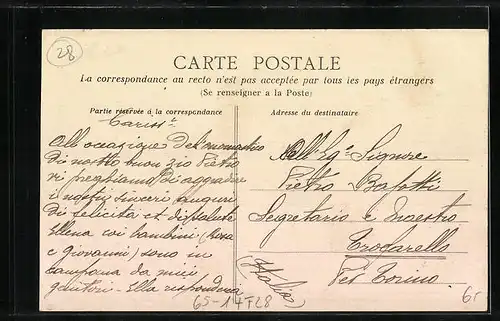 28
CARTE POSTALE
La correspondance au recto n'est pas acceptée par tous les pays étrangers
(Se renseigner a la Poste)
Partie réservée à la correspondance
Cariss.
All'occasione del onomastico
di nostro buon zio Pietro
vi preghiamo di aggradire
i nostri sinceri auguri
di felicità et di salute
Ellena coi bambini (Rosa
e Giovanni) sono in
campana da miei
genitori - Ella risponderà
Adresse du destinataire
All Eg. Signore
Pietro
Segretario e Maestro
Trofarello
per Torino
Italia
65-14728
6